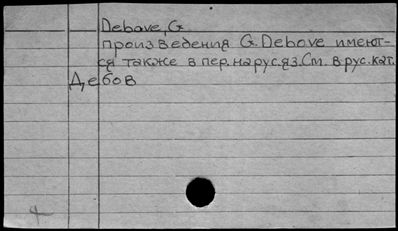 Debove, G.
произведения G. Debove имеют-
ся также в пер. на рус. яз. См. в рус. кат.
Дебов
4